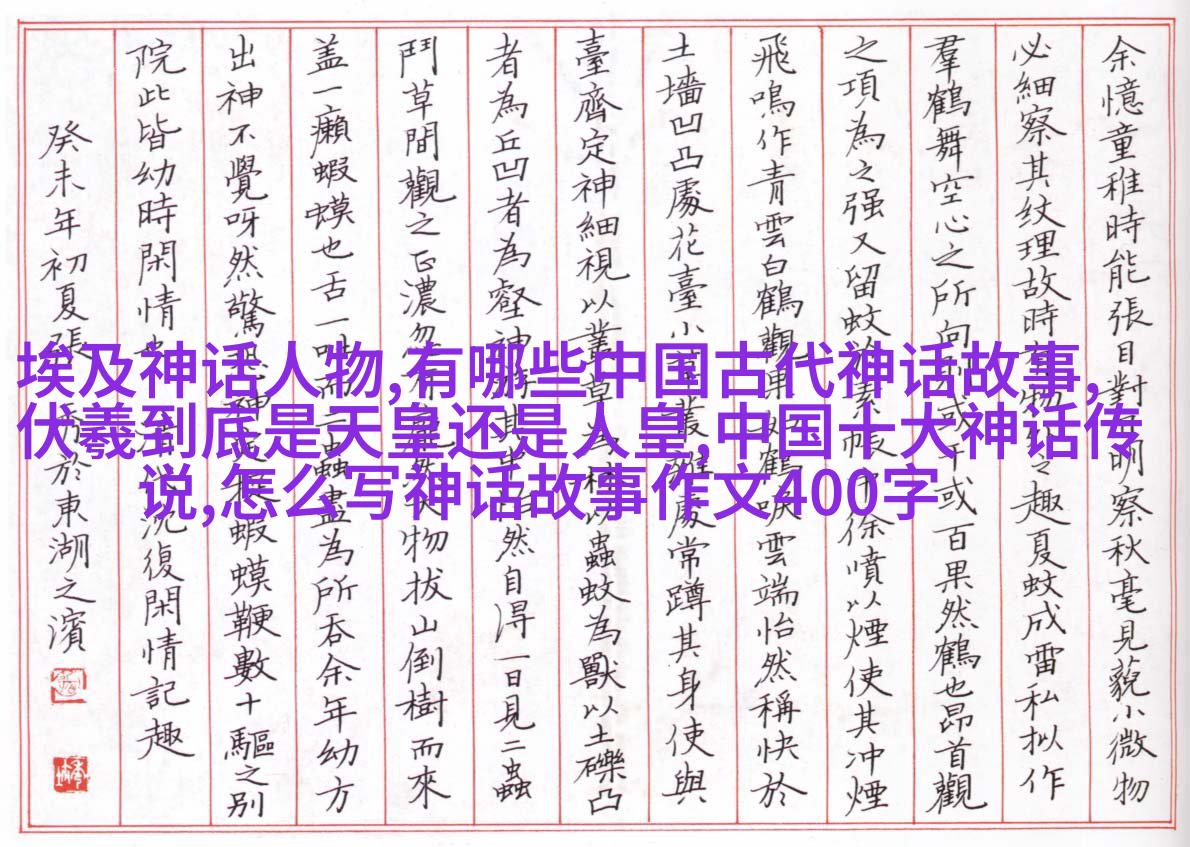 埃及神话人物,有哪些中国古代神话故事,
伏羲到底是天皇还是人皇,中国十大神话传
说,怎么写神话故事作文400字
余憶童稚時能張目對明察秋毫見藐小微物
必細察其紋理故時之趣夏蚊成雷私拟作
羣鶴舞空心之所向或千或百果然鶴也昂首觀
之項為之强又留蚊於素帳中徐噴以煙使其冲煙
飛鳴作青雲白鶴觀如鶴唳雲端怡然稱快於
土墻凹凸處花臺小草叢雜處常蹲其身使與
臺齊定神細視以叢草為林以蟲蚊為獸以土礫凸
者為丘凹者為壑神游其中自然自得一日見二蟲
鬥草間觀之正濃忽物拔山倒樹而來
盖一癩蝦蟆也舌一吐而二蟲盡為所吞余年幼方
出神不覺呀然驚恐神定捉蝦蟆鞭數十驅之别
院此皆幼時閑情沈復閑情記趣
癸未年初夏張於東湖之濱